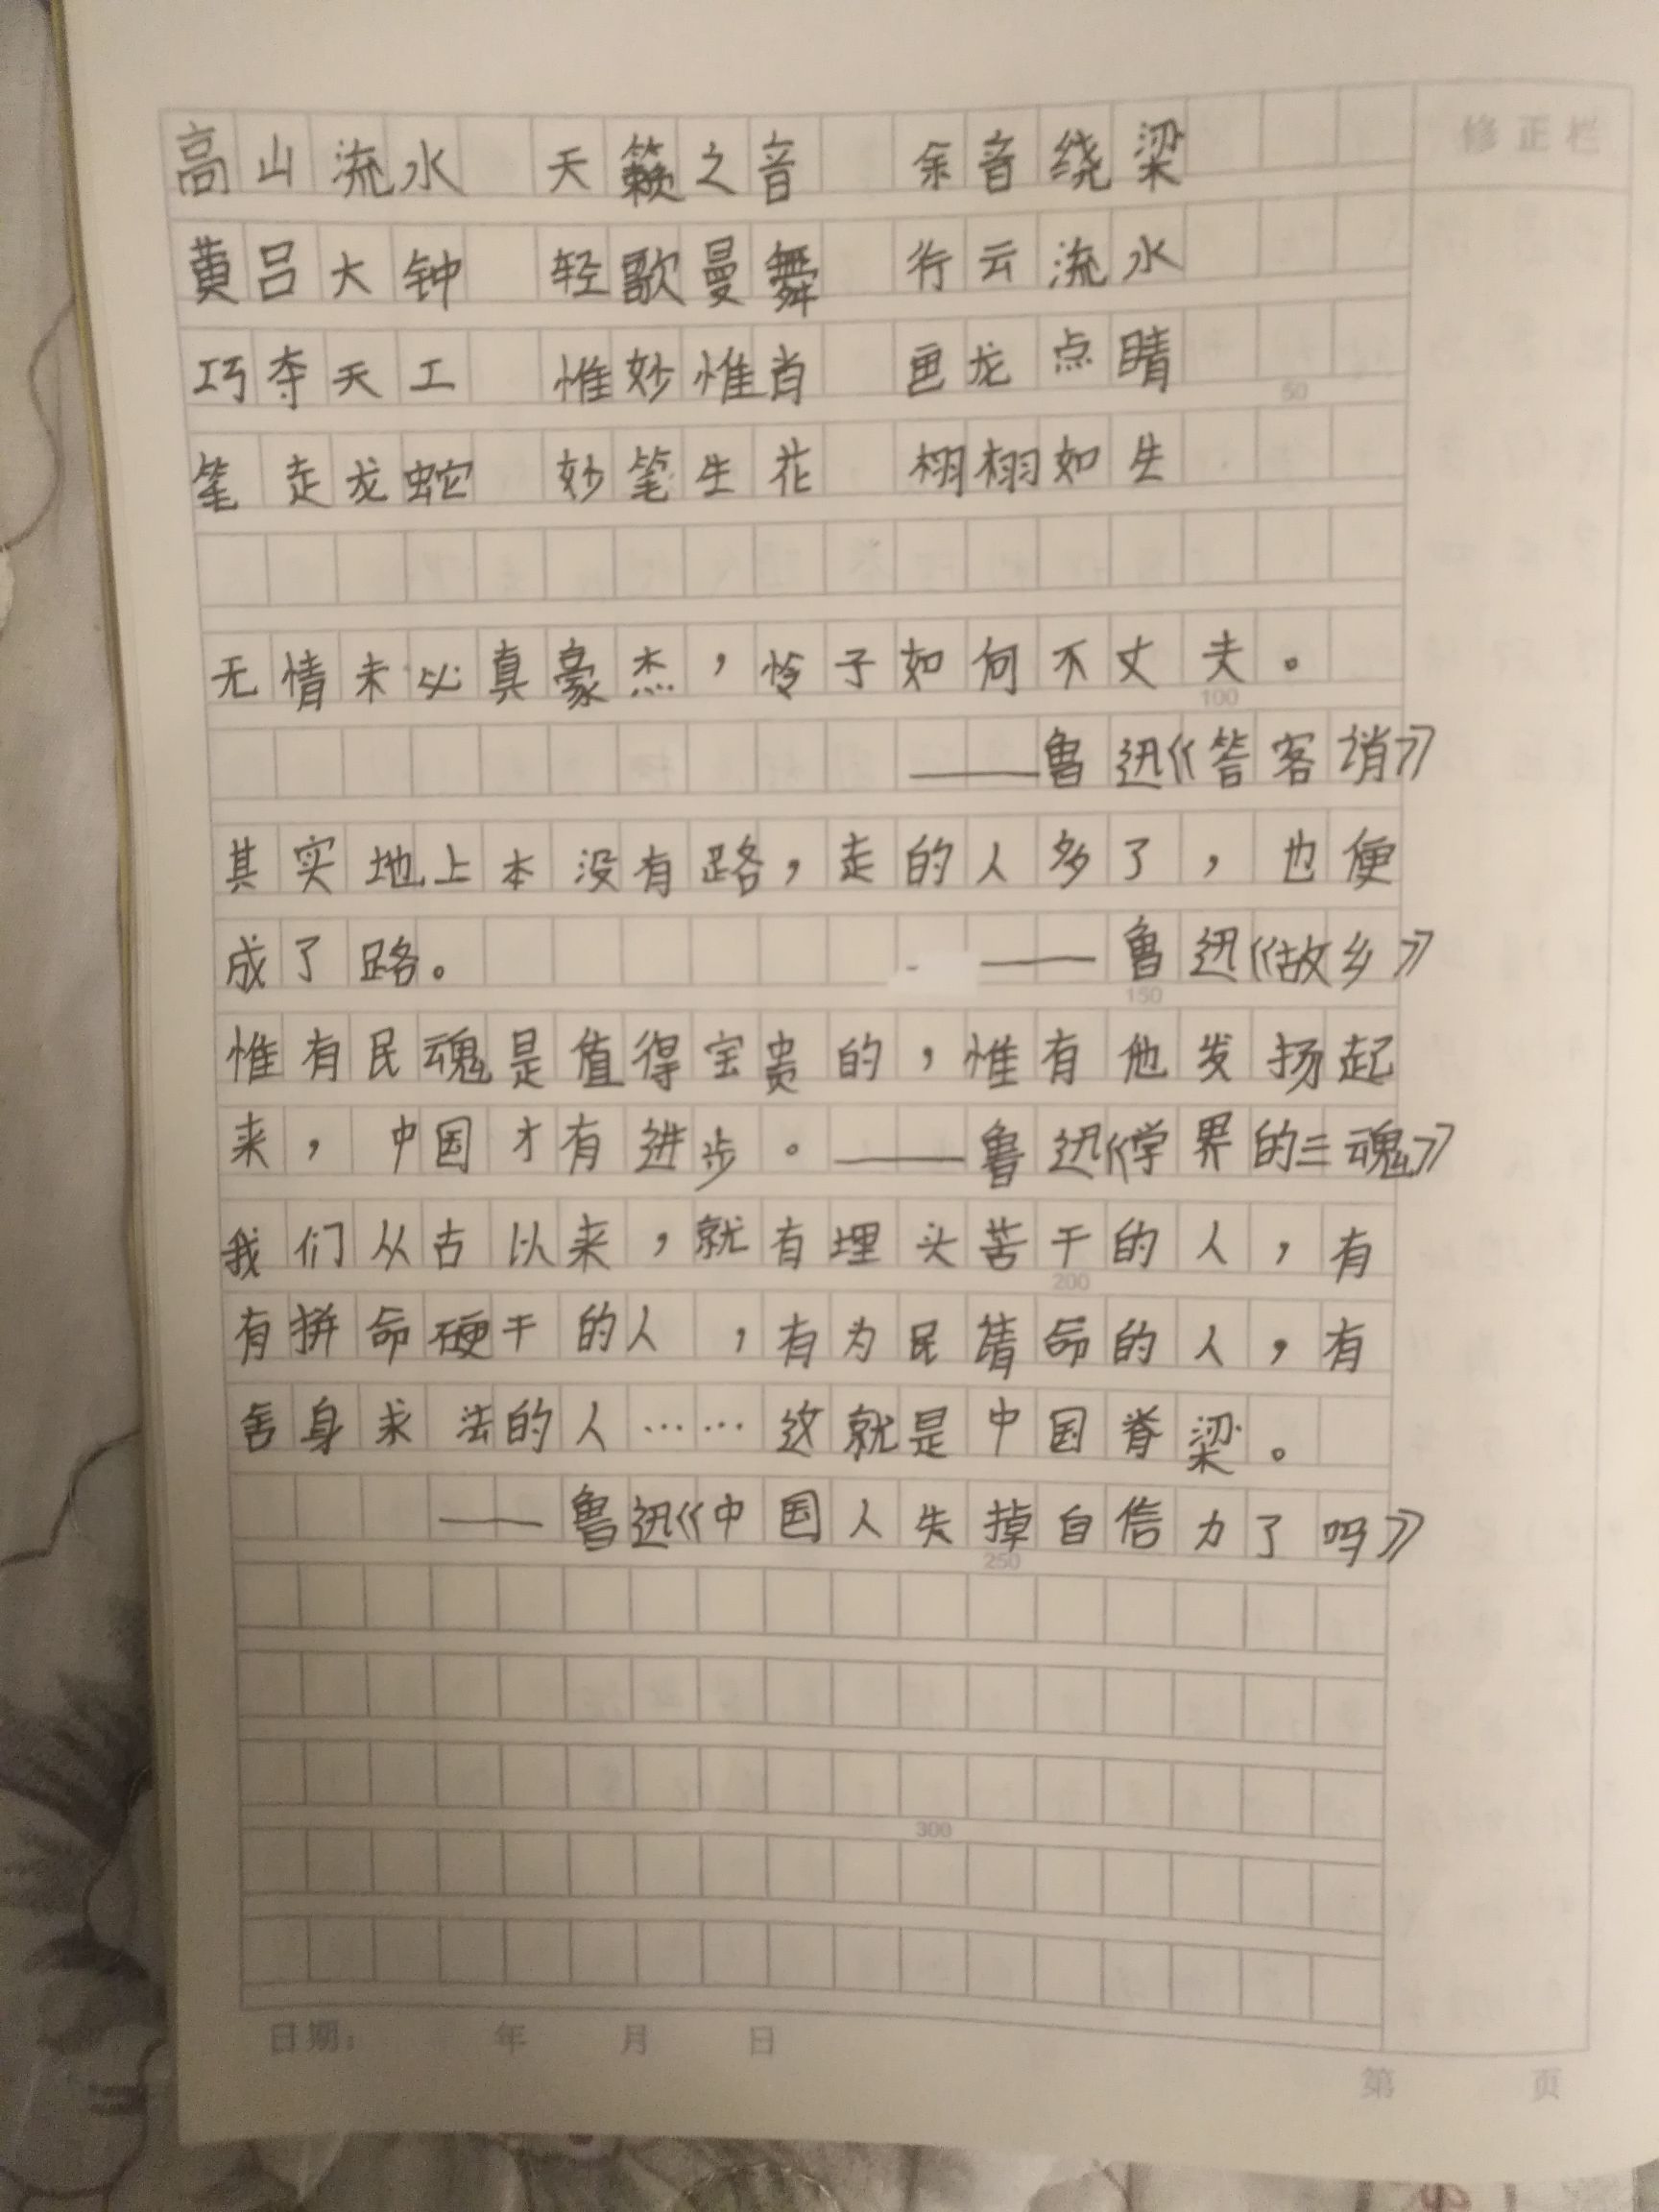 修正栏
高山流水 天籁之音 余音绕梁
黄吕大钟 轻歌曼舞 行云流水
巧夺天工 惟妙惟肖 画龙点睛
50
笔走龙蛇 妙笔生花 栩栩如生
无情未必真豪杰，怜子如何不丈夫。
100
——鲁迅《答客诮》
其实地上本没有路，走的人多了，也便
成了路。 ——鲁迅《故乡》
150
惟有民魂是值得宝贵的，惟有他发扬起
来，中国才有进步。——鲁迅《学界的三魂》
我们从古以来，就有埋头苦干的人，有
200
有拼命硬干的人，有为民请命的人，有
舍身求法的人……这就是中国脊梁。
——鲁迅《中国人失掉自信力了吗》
250
300
日期： 年 月 日
第 页